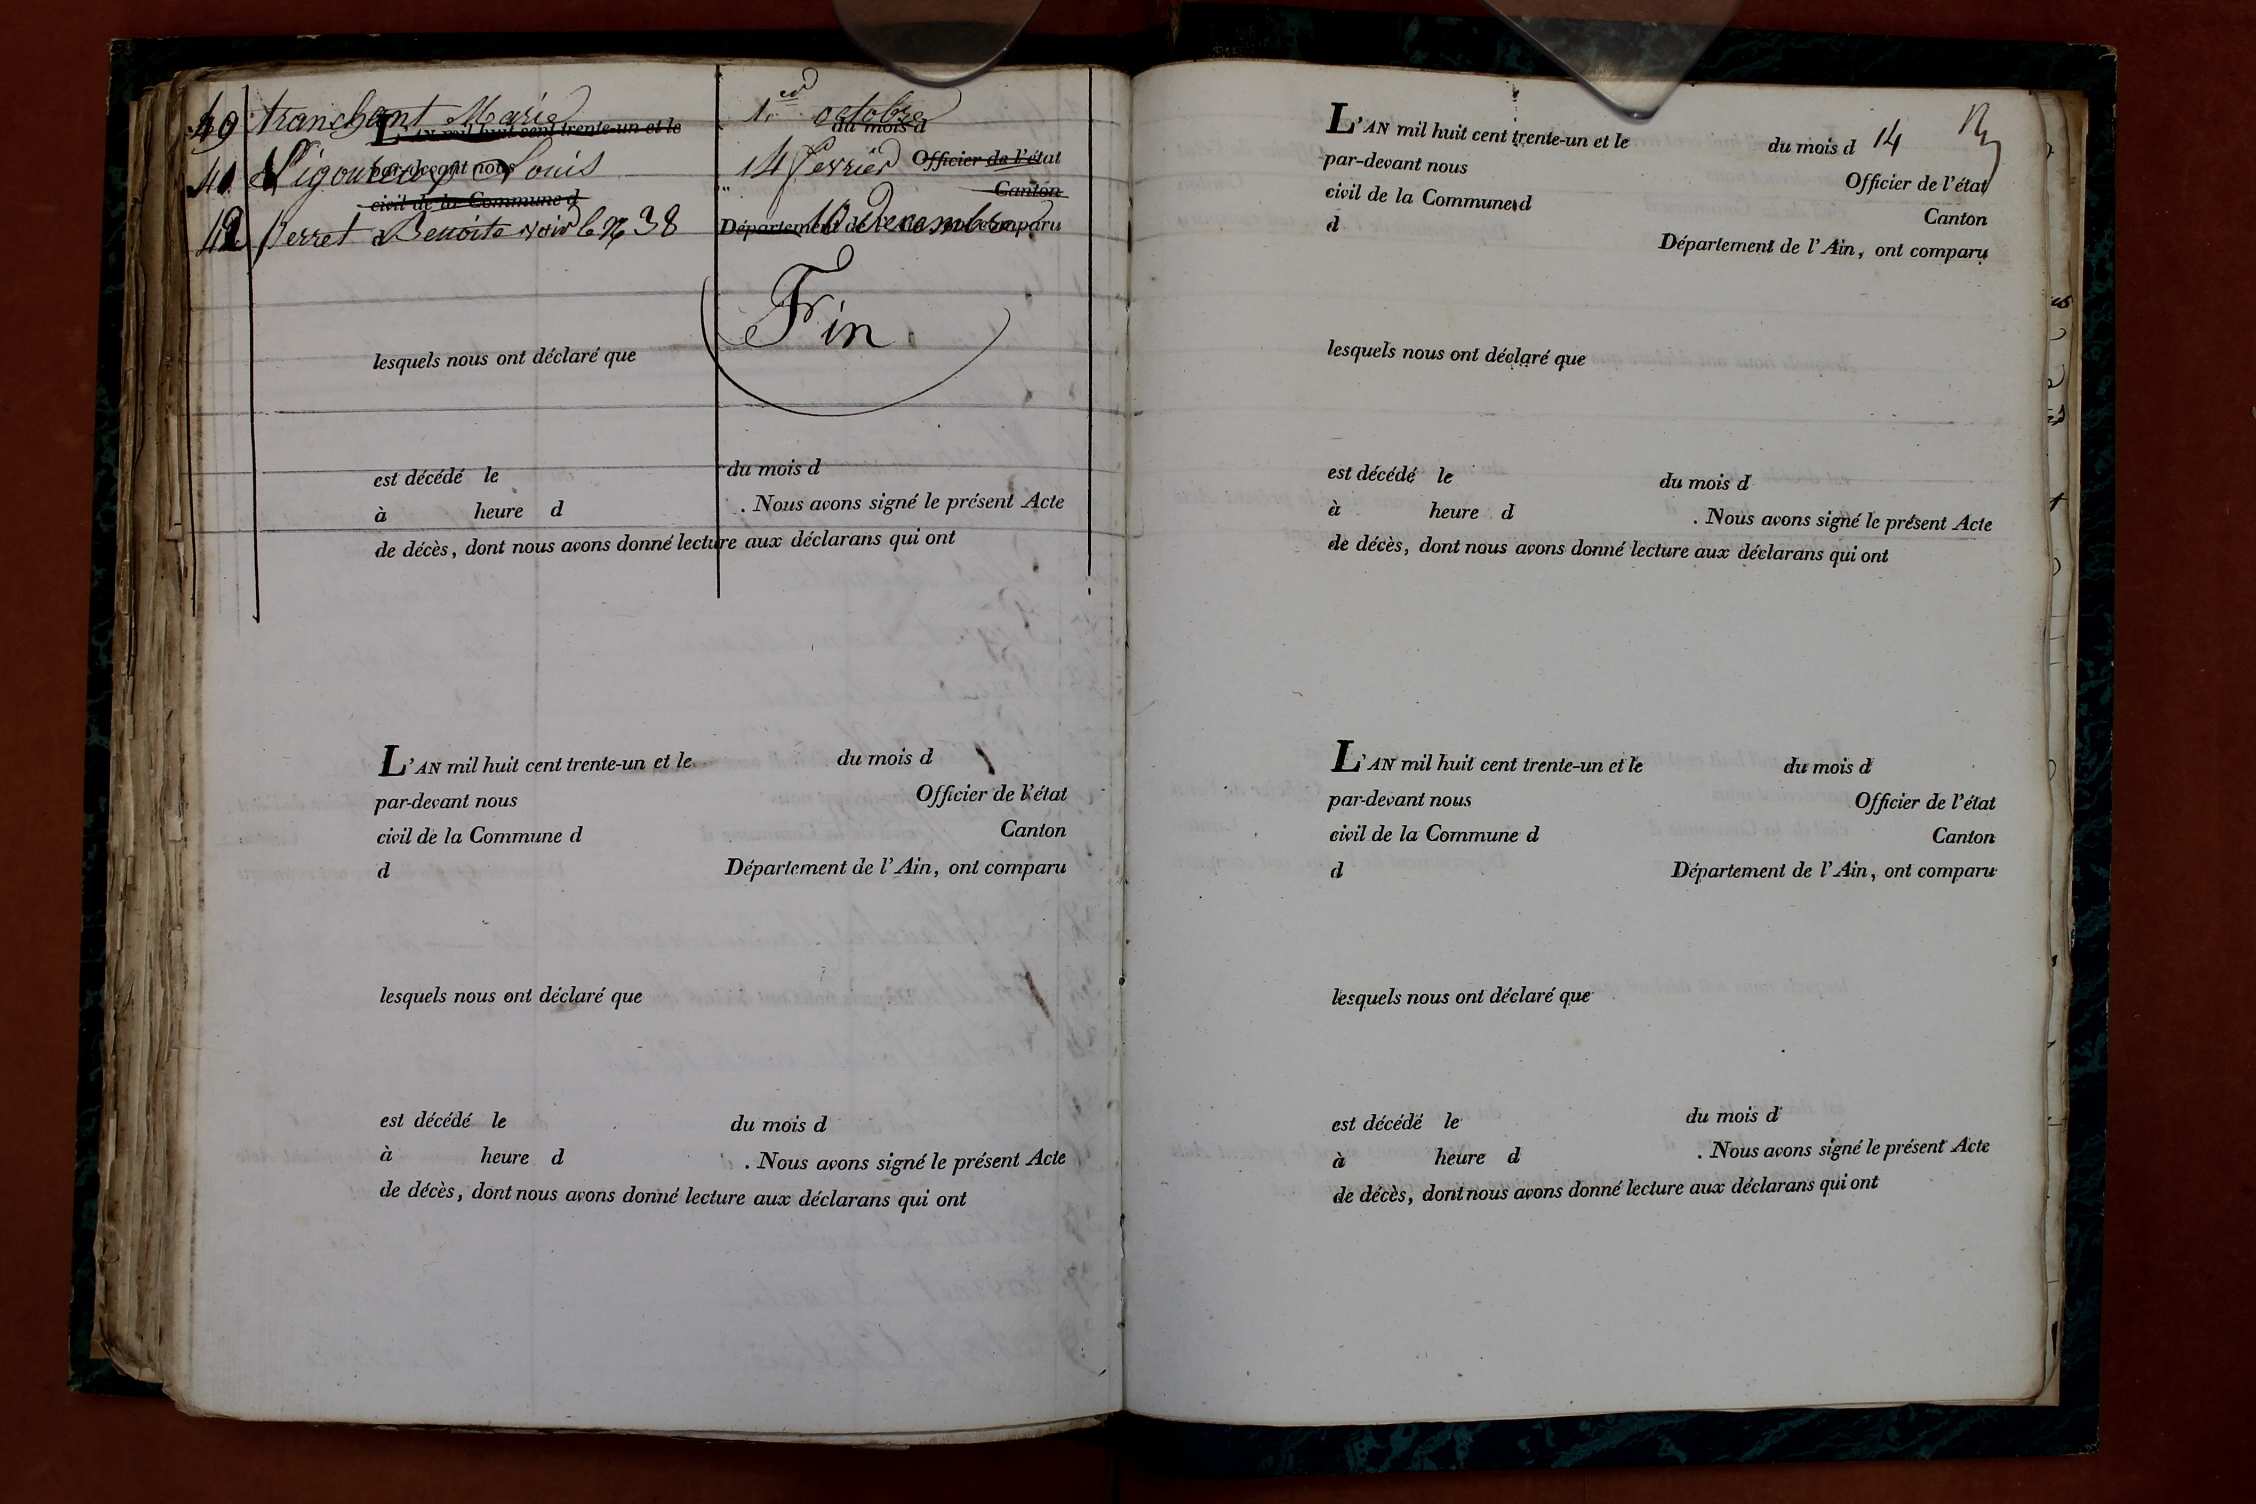 40 tranchant Marie 1er octobre
L'AN mil huit cent trente-un et le du mois d
41 Louis 14 fevrier
par-devant nous Officier de l'état
civil de la Commune d Canton
42 Perret Benoite voir le N 38 10 decembre
Département de l'Ain, ont comparu
Fin
lesquels nous ont déclaré que
est décédé le du mois d
à heure d . Nous avons signé le présent Acte
de décès, dont nous avons donné lecture aux déclarans qui ont
L'AN mil huit cent trente-un et le du mois d
par-devant nous Officier de l'état
civil de la Commune d Canton
d Département de l'Ain, ont comparu
lesquels nous ont déclaré que
est décédé le du mois d
à heure d . Nous avons signé le présent Acte
de décès, dont nous avons donné lecture aux déclarans qui ont
14
L'AN mil huit cent trente-un et le du mois d
par-devant nous Officier de l'état
civil de la Commune d Canton
d Département de l'Ain, ont comparu
lesquels nous ont déclaré que
est décédé le du mois d
à heure d . Nous avons signé le présent Acte
de décès, dont nous avons donné lecture aux déclarans qui ont
L'AN mil huit cent trente-un et le du mois d
par-devant nous Officier de l'état
civil de la Commune d Canton
d Département de l'Ain, ont comparu
lesquels nous ont déclaré que
est décédé le du mois d
à heure d . Nous avons signé le présent Acte
de décès, dont nous avons donné lecture aux déclarans qui ont